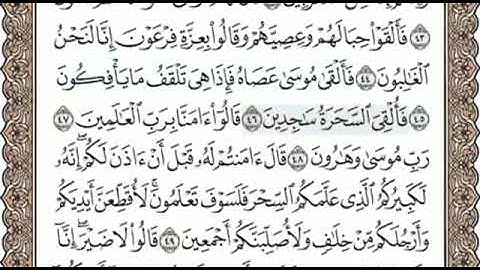 ﴿٤٣﴾ فَأَلْقَوْا۟ حِبَالَهُمْ وَعِصِيَّهُمْ وَقَالُوا۟ بِعِزَّةِ فِرْعَوْنَ إِنَّا لَنَحْنُ
ٱلْغَٰلِبُونَ ﴿٤٤﴾ فَأَلْقَىٰ مُوسَىٰ عَصَاهُ فَإِذَا هِىَ تَلْقَفُ مَا يَأْفِكُونَ
﴿٤٥﴾ فَأُلْقِىَ ٱلسَّحَرَةُ سَٰجِدِينَ ﴿٤٦﴾ قَالُوٓا۟ ءَامَنَّا بِرَبِّ ٱلْعَٰلَمِينَ ﴿٤٧﴾
رَبِّ مُوسَىٰ وَهَٰرُونَ ﴿٤٨﴾ قَالَ ءَامَنتُمْ لَهُۥ قَبْلَ أَنْ ءَاذَنَ لَكُمْ ۖ إِنَّهُۥ
لَكَبِيرُكُمُ ٱلَّذِى عَلَّمَكُمُ ٱلسِّحْرَ فَلَسَوْفَ تَعْلَمُونَ ۚ لَأُقَطِّعَنَّ أَيْدِيَكُمْ
وَأَرْجُلَكُم مِّنْ خِلَٰفٍ وَلَأُصَلِّبَنَّكُمْ أَجْمَعِينَ ﴿٤٩﴾ قَالُوا۟ لَا ضَيْرَ ۖ إِنَّآ